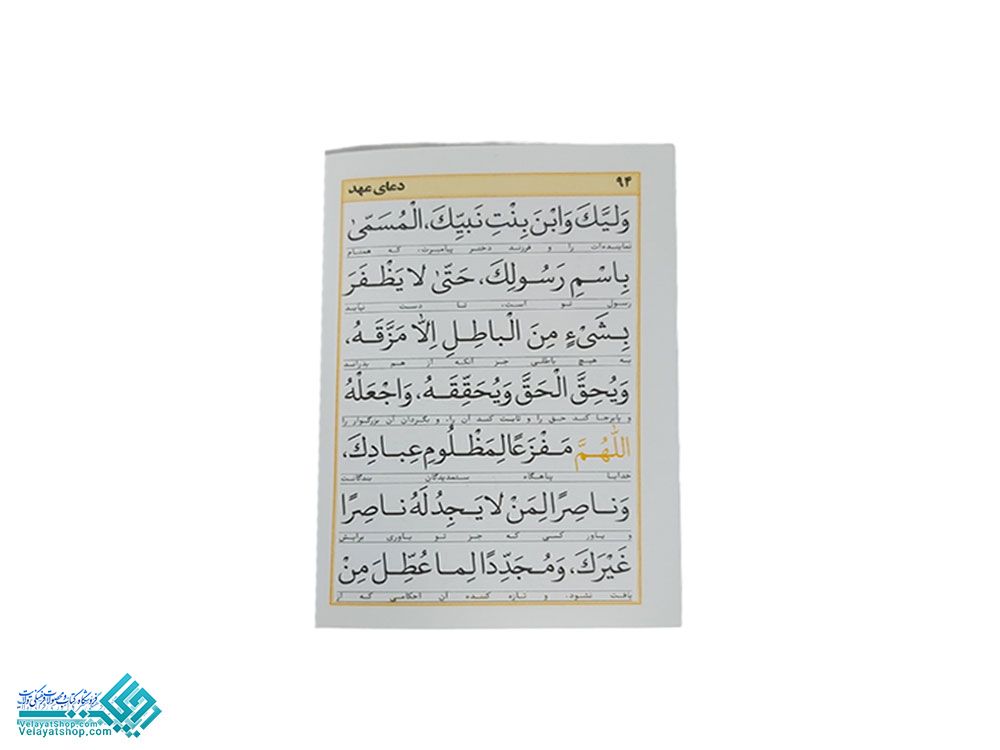 ۹۴ دعای عهد
وَلِيَّكَ وَابْنَ بِنْتِ نَبِيِّكَ، الْمُسَمّىٰ
نماینده‌ات را و فرزند دختر پیامبرت، که همنام
بِاسْمِ رَسُولِكَ، حَتّىٰ لا يَظْفَرَ
رسول تو است، تا دست نیابد
بِشَىْءٍ مِنَ الْباطِلِ اِلّا مَزَّقَهُ،
به هیچ باطلی جز آنکه از هم بدراند
وَيُحِقَّ الْحَقَّ وَيُحَقِّقَهُ، وَاجْعَلْهُ
و پابرجا کند حق را و ثابت کند آن را، و بگردان آن بزرگوار را
اللّٰهُمَّ مَفْزَعًا لِمَظْلُومِ عِبادِكَ،
خدایا پناهگاه ستمدیدگان بندگانت
وَناصِرًا لِمَنْ لا يَجِدُ لَهُ ناصِرًا
و یاور کسی که جز تو یاوری برایش
غَيْرَكَ، وَمُجَدِّدًا لِما عُطِّلَ مِنْ
یافت نشود، و تازه کننده آن احکامی که از
فروشگاه کتاب و محصولات فرهنگی ولایت
VelayatShop.com
Velayatshop.com